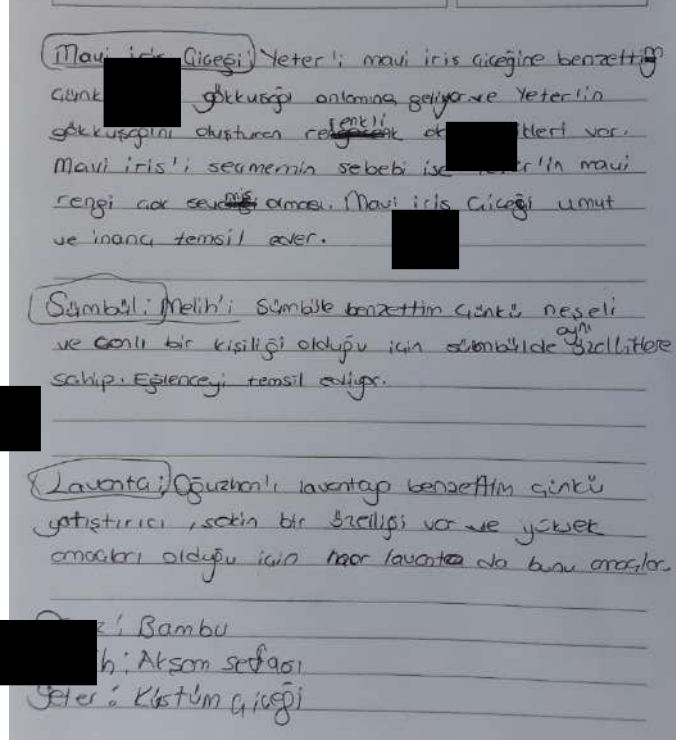 Mavi iris Çiçeği; Yeter'i mavi iris çiçeğine benzettim
gökkuşağı anlamına geliyor ve Yeter'in
gökkuşağını oluşturan renkli
Mavi iris'i seçmemin sebebi ise 'in mavi
rengi çok sevmiş olması. Mavi iris Çiçeği umut
ve inancı temsil eder.
Sümbül: Melih'i Sümbüle benzettim çünkü neşeli
ve canlı bir kişiliği olduğu için sümbülde aynı özelliklere
sahip. Eğlenceyi temsil ediyor.
Lavanta; Oğuzhan'ı lavantaya benzettim çünkü
yatıştırıcı, sakin bir özelliği var ve yüksek
amaçları olduğu için lavanta da bunu amaçlar.
: Bambu
h: Akşam sefası
Yeter: Küstüm çiçeği